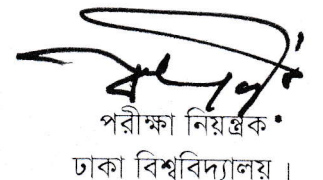 পরীক্ষা নিয়ন্ত্রক
ঢাকা বিশ্ববিদ্যালয় ।